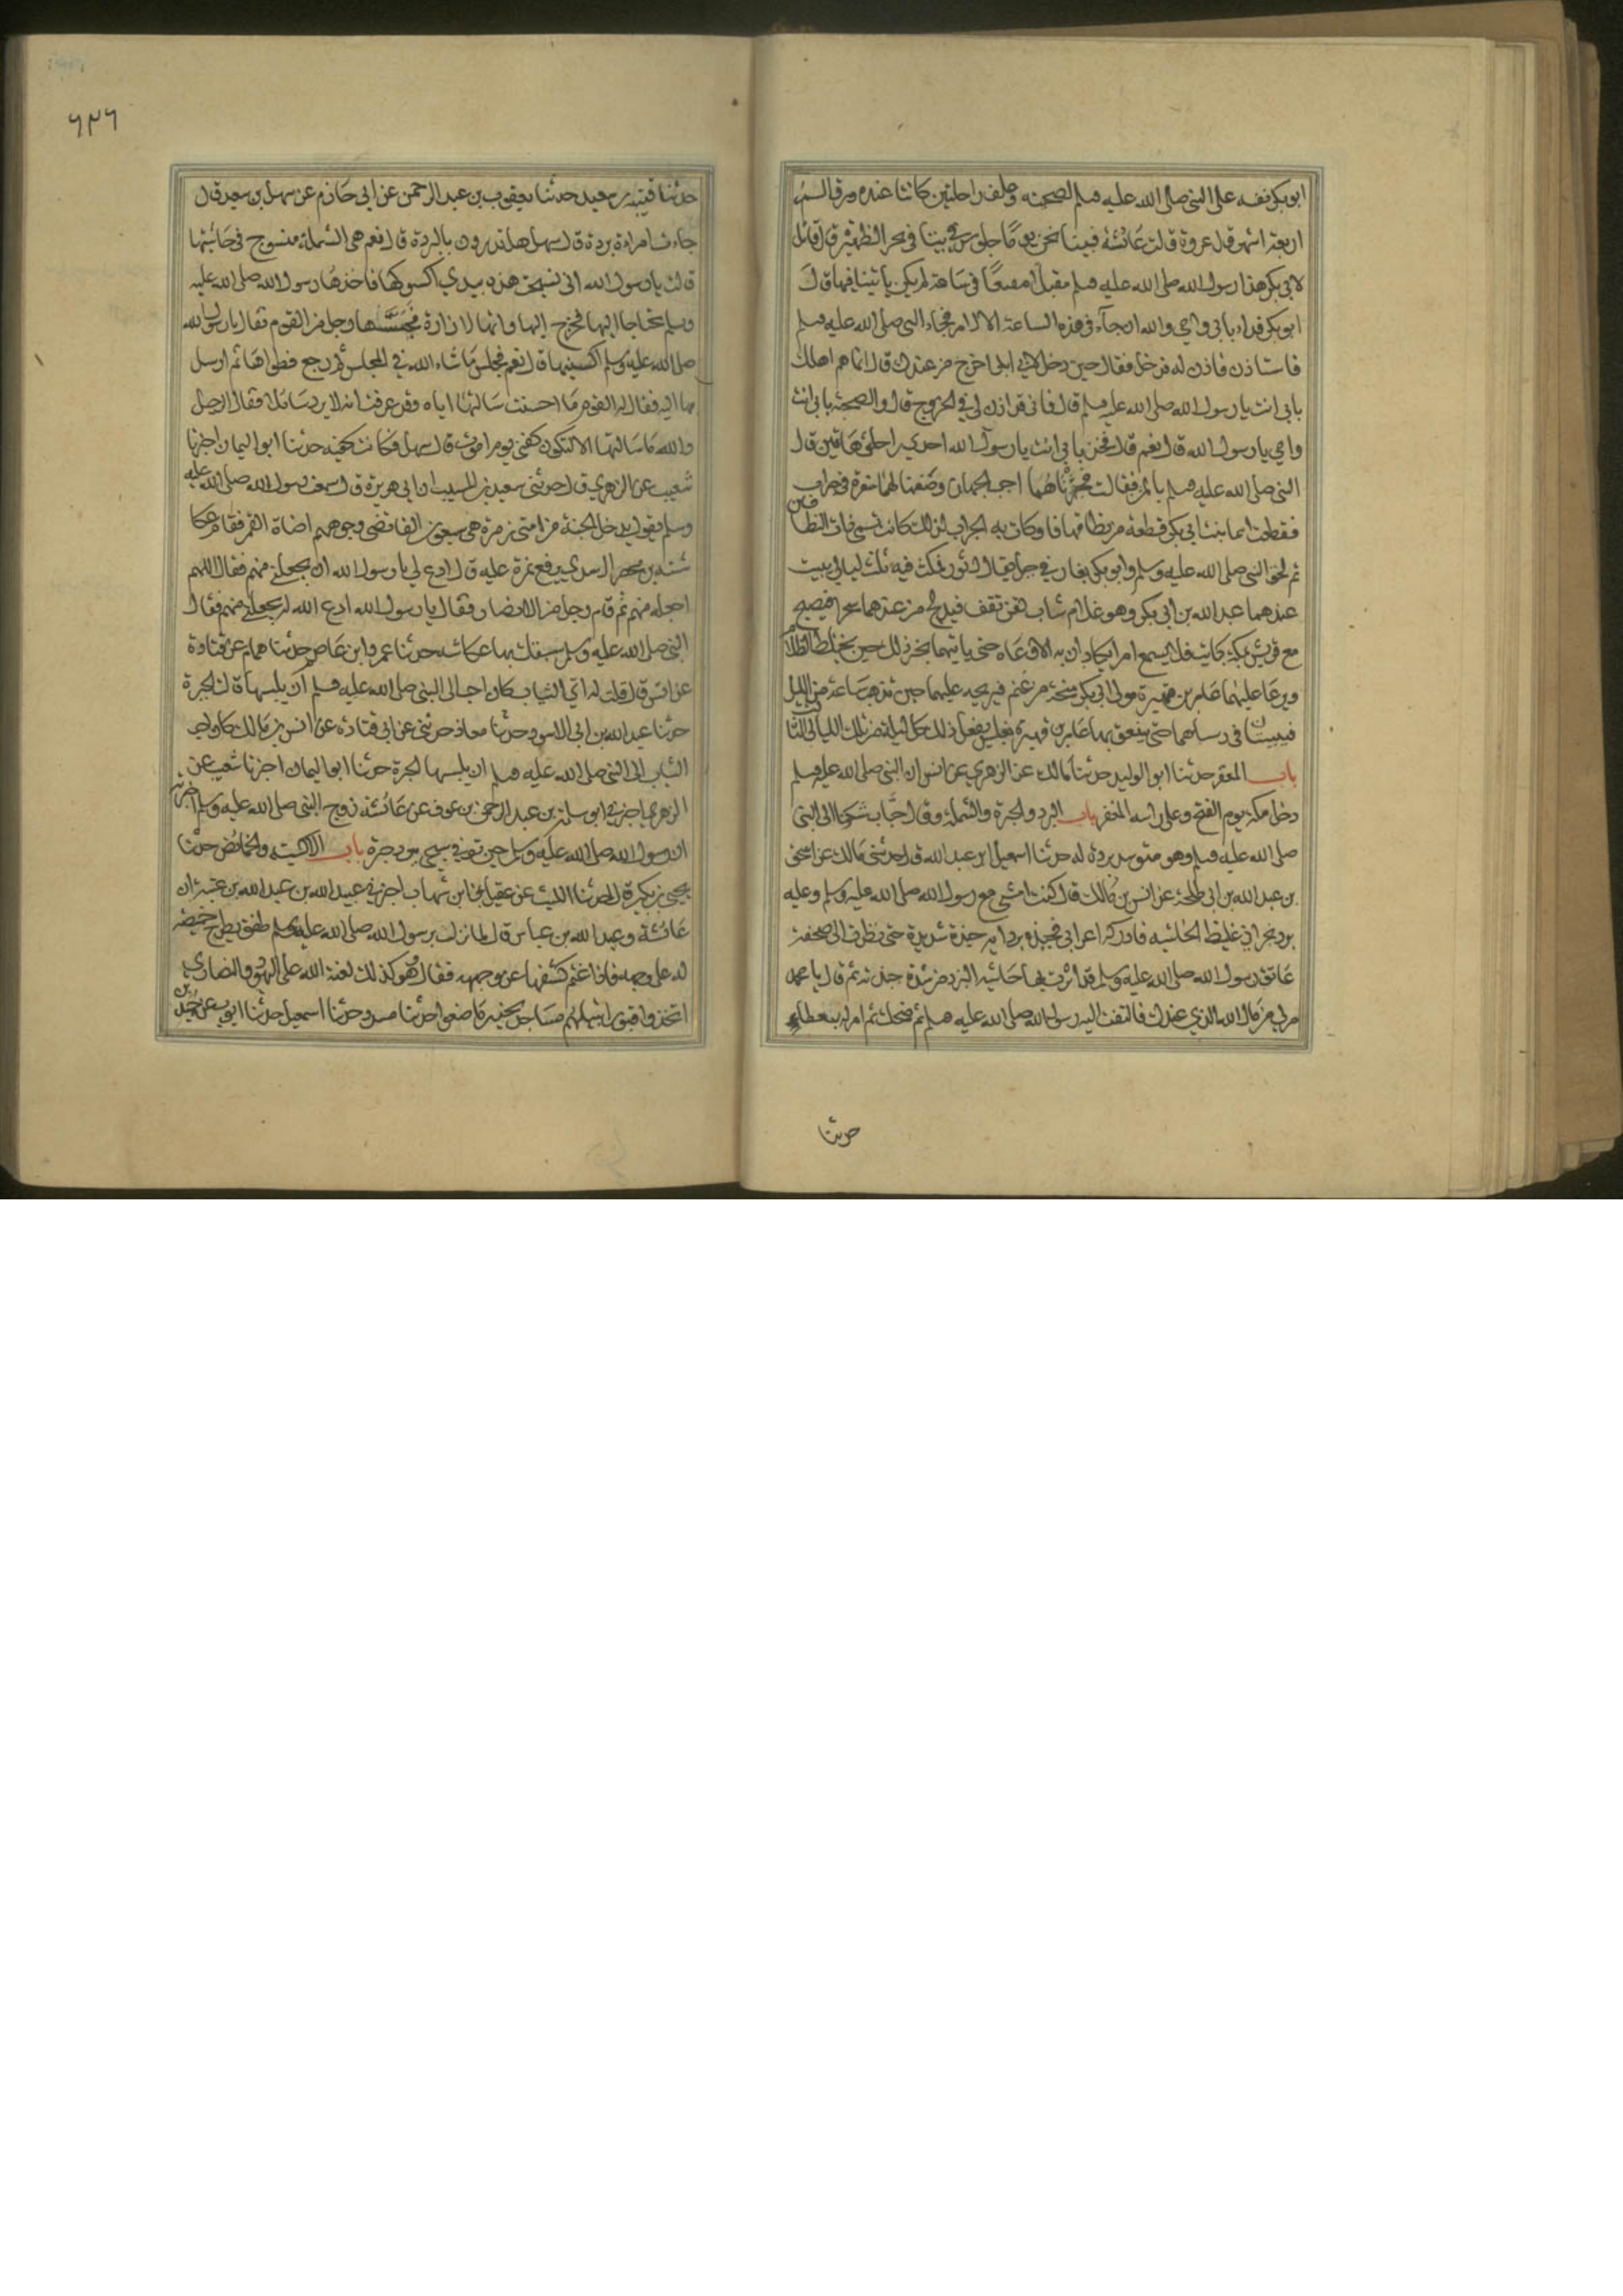 ابو بكر نفسه على النبي صلى الله عليه وسلم لصحبته وعلف راحلتين كانتا عنده ورق السمر
اربعة اشهر قال عروة قالت عائشة فبينا نحن يوما جلوس في بيتنا في نحر الظهيرة قال قائل
لابي بكر هذا رسول الله صلى الله عليه وسلم مقبلا متقنعا في ساعة لم يكن ياتينا فيها قال
ابو بكر فداء بابي وامي والله ان جاء في هذه الساعة الا لامر فجاء النبي صلى الله عليه وسلم
فاستاذن فاذن له فدخل فقال حين دخل لابي بكر اخرج من عندك قال انما هم اهلك
بابي انت يا رسول الله صلى الله عليه وسلم قال فاني قد اذن لي في الخروج قال والصحبة بابي انت
وامي يا رسول الله قال نعم قال فخذ بابي انت يا رسول الله احدى راحلتي هاتين قال
النبي صلى الله عليه وسلم بالثمن فقالت فجهزناهما احب الجهاز وضعنا لهما سفرة في جراب
فقطعت اسما بنت ابي بكر قطعة من نطاقها فاوكات به الجراب لذلك كانت تسمى ذات النطاقين
ثم لحق النبي صلى الله عليه وسلم وابو بكر بغار في جبل يقال له ثور فمكث فيه ثلث ليالي يبيت
عندهما عبد الله بن ابي بكر وهو غلام شاب لقن ثقف فيدلج من عندهما سحرا فيصبح
مع قريش بمكة كبائت فلا يسمع امرا يكادان به الا وعاه حتى ياتيهما بخبر ذلك حين يختلط الظلام
ويرعا عليهما عامر بن فهيرة مولى ابي بكر منحة من غنم فيريحه عليهما حين تذهب ساعة من الليل
فيبيتان في رسلهما حتى ينعق بها عامر بن فهيرة بغلس يفعل ذلك كل ليلة من تلك الليالي الثلث
باب المغفر حدثنا ابو الوليد حدثنا مالك عن الزهري عن انس ان النبي صلى الله عليه وسلم
دخل مكة يوم الفتح وعلى راسه المغفر باب البرد والحبرة والشملة وقال خباب شكونا الى النبي
صلى الله عليه وسلم وهو متوسد بردة له حدثنا اسمعيل ابن عبد الله قال حدثني مالك عن اسحق
بن عبد الله بن ابي طلحة عن انس بن مالك قال كنت امشي مع رسول الله صلى الله عليه وسلم وعليه
برد نجراني غليظ الحاشيه فادركه اعرابي فجبذه بردايه جبذة شديدة حتى نظرت الى صفحة
عاتق رسول الله صلى الله عليه وسلم قد اثرت بها حاشيه البرد من شدة جبذته ثم قال يا محمد
مر لي من مال الله الذي عندك فالتفت اليه رسول الله صلى الله عليه وسلم ثم ضحك ثم امر له بعطاء
حدثنا
٦٢٦
حدثنا قتيبة بن سعيد حدثنا يعقوب بن عبد الرحمن عن ابي حازم عن سهل بن سعد قال
جاءت امراة ببردة قال سهل هل تدرون ما البردة قال نعم هي الشملة منسوج في حاشيتها
قالت يا رسول الله اني نسجت هذه بيدي اكسوكها فاخذها رسول الله صلى الله عليه
وسلم محتاجا اليها فخرج الينا وانها لازارة فجسها رجل من القوم فقال يا رسول الله
صلى الله عليه وسلم اكسنيها قال نعم فجلس ما شاء الله في المجلس ثم رجع فطواها ثم ارسل
بها اليه فقال له القوم ما احسنت سالتها اياه وقد عرفت انه لا يرد سائلا فقال الرجل
والله ما سالتها الا لتكون كفني يوم اموت قال سهل فكانت كفنه حدثنا ابو اليمان اخبرنا
شعيب عن الزهري قال حدثني سعيد بن المسيب ان ابي هريرة قال سمعت رسول الله صلى الله عليه
وسلم يقول يدخل الجنة من امتي زمرة هي سبعون الفا تضي وجوههم اضاة القمر فقام عكا
شة بن محصن الاسدي يرفع نمرة عليه قال ادع لي يا رسول الله ان يجعلني منهم فقال اللهم
اجعله منهم ثم قام رجل من الانصار فقال يا رسول الله ادع الله ان يجعلني منهم فقال
النبي صلى الله عليه وسلم سبقك بها عكاشه حدثنا عمرو ابن عاصم حدثنا همام عن قتادة
عن انس قال قلت له اي الثياب كان احب الى النبي صلى الله عليه وسلم ان يلبسها قال الحبرة
حدثنا عبد الله بن ابي الاسود حدثنا معاذ حدثني عن ابي قتادة عن انس بن مالك كان احب
الثياب الى النبي صلى الله عليه وسلم ان يلبسها الحبرة حدثنا ابو اليمان اخبرنا شعيب عن
الزهري اخبرني ابو سلمة بن عبد الرحمن بن عوف عن عائشة زوج النبي صلى الله عليه وسلم اخبرته
ان رسول الله صلى الله عليه وسلم حين توفي سجي ببرد حبرة باب الاكسية والخمائص حدثنا
يحيى بن بكير حدثنا الليث عن عقيل عن ابن شهاب اخبرني عبيد الله بن عبد الله بن عتبة ان
عائشة وعبد الله بن عباس قال لما نزل برسول الله صلى الله عليه وسلم طفق يطرح خميصة
له على وجهه فاذا اغتم كشفها عن وجهه فقال وهو كذلك لعنة الله على اليهود والنصارى
اتخذوا قبور انبيائهم مساجد يحذر ما صنعوا حدثنا مسدد حدثنا اسمعيل حدثنا ايوب عن حميد بن